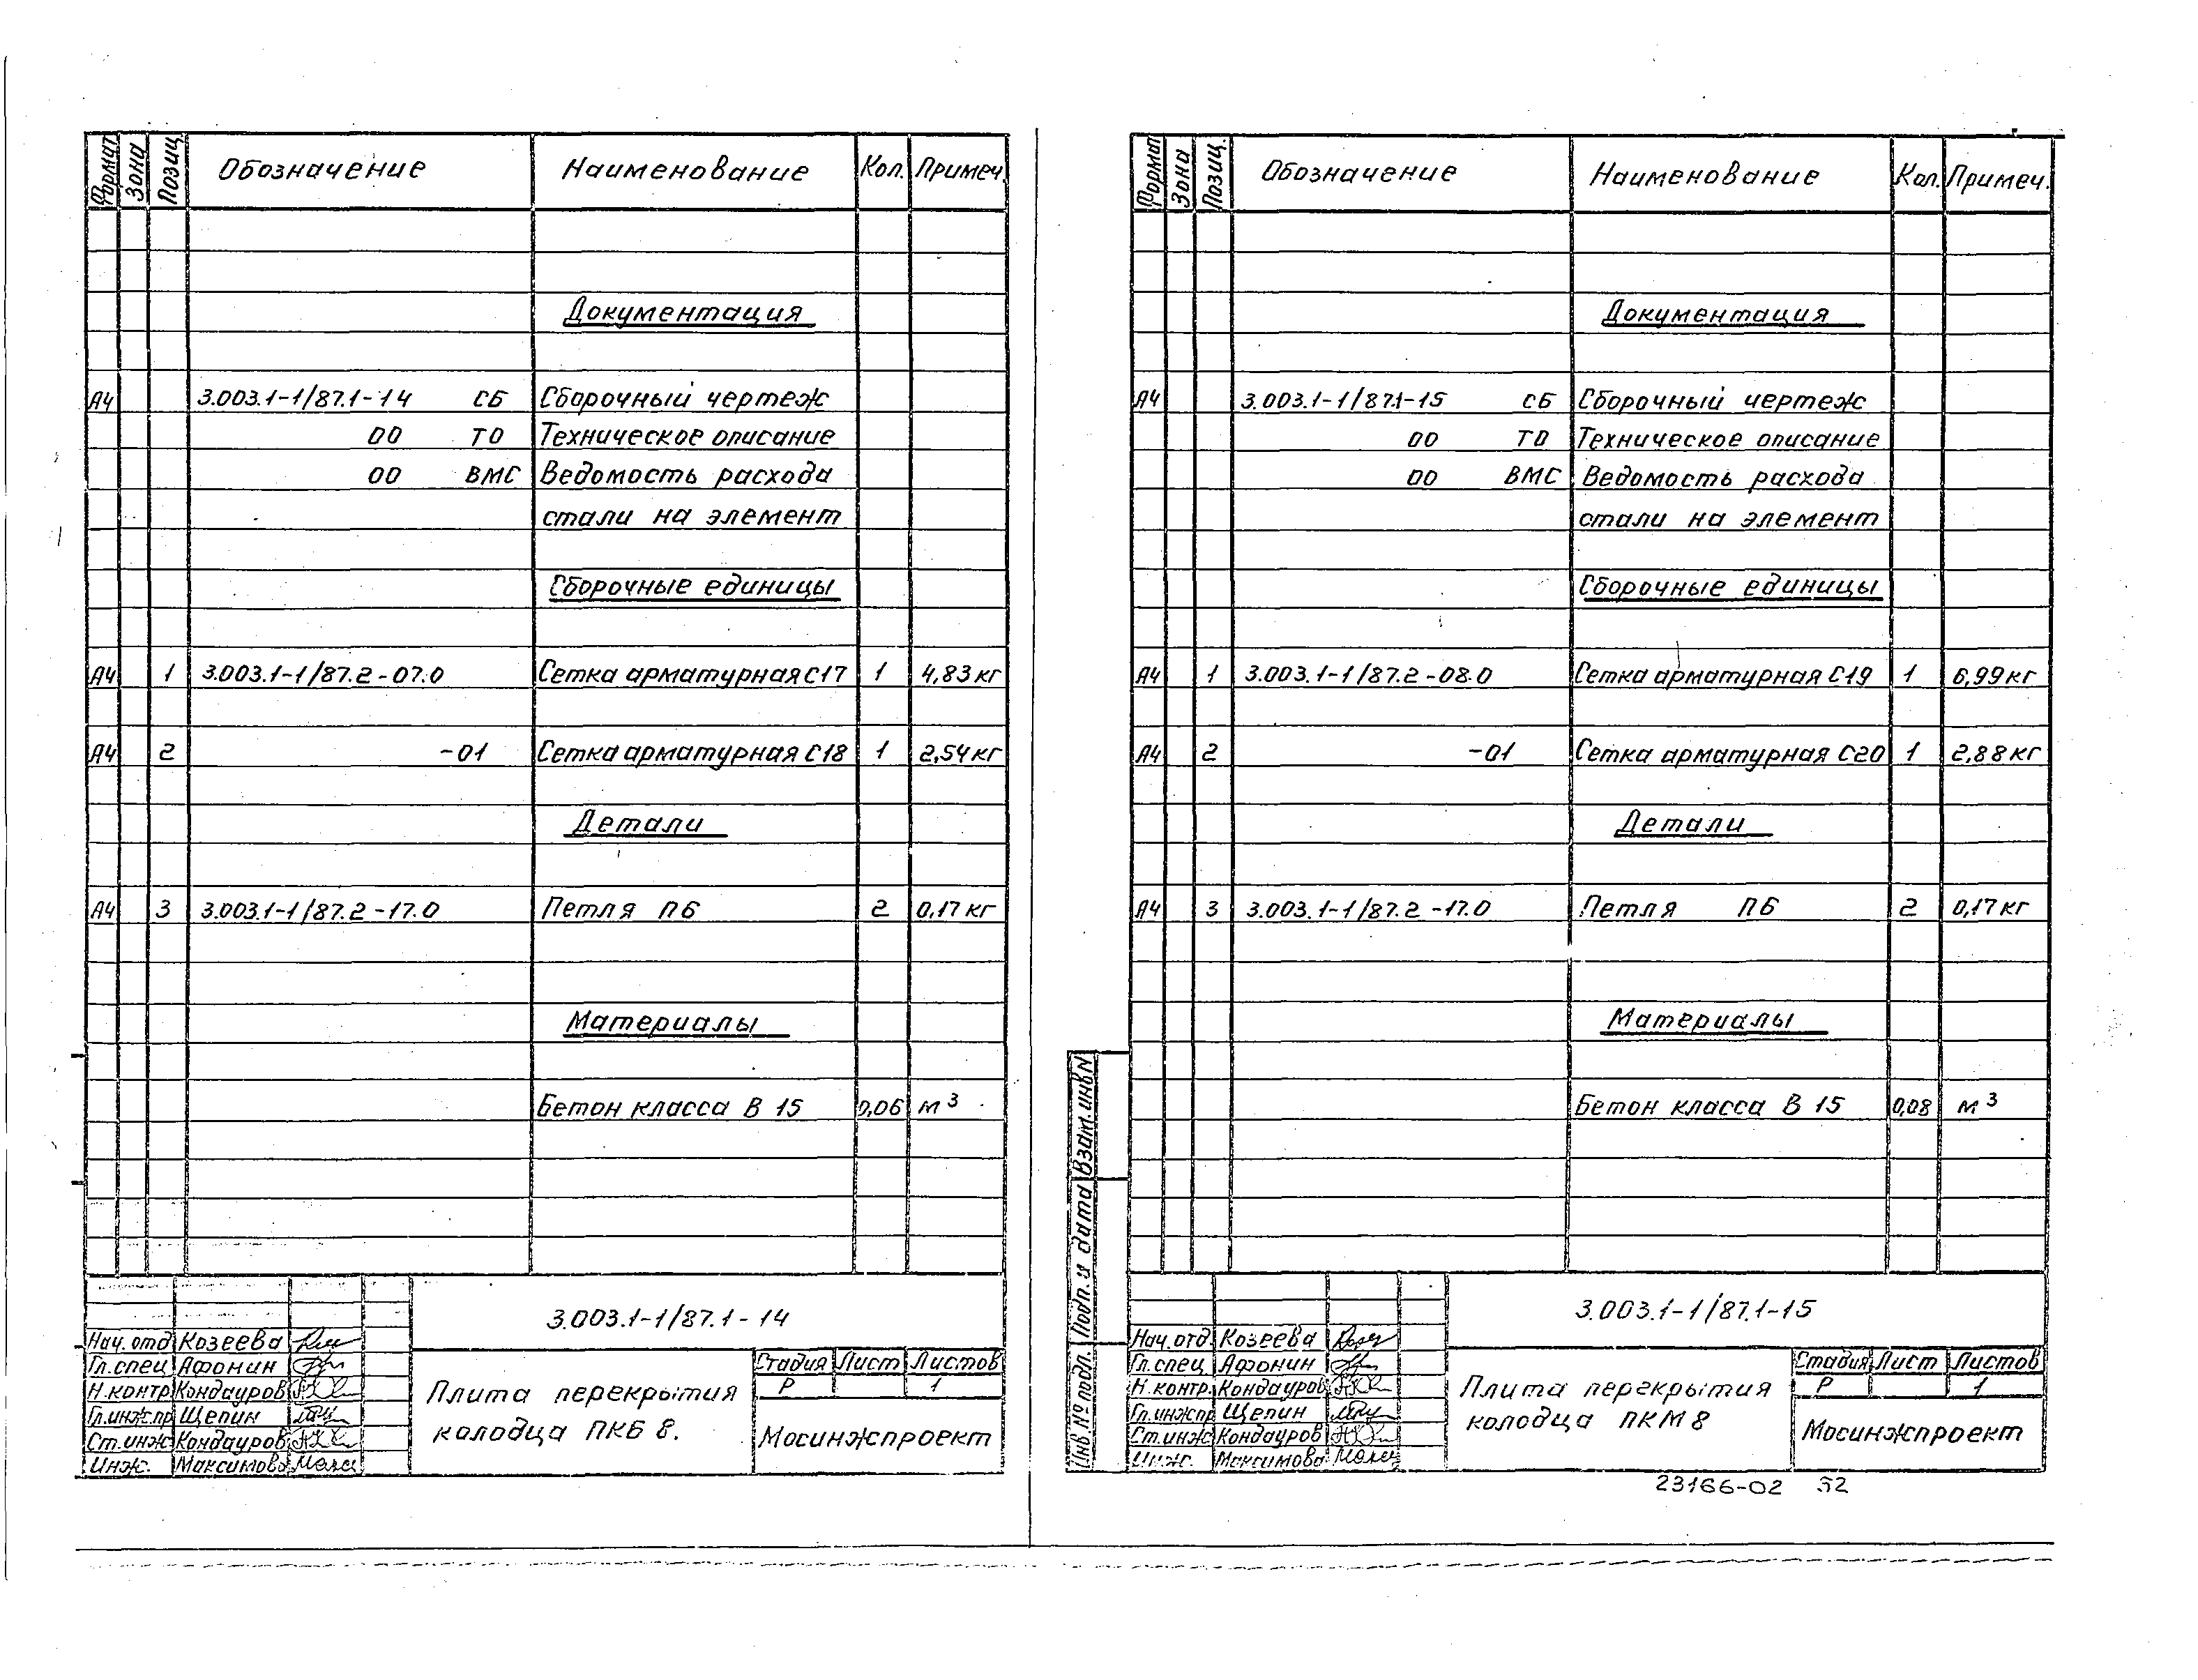 Формат Зона Позиц. Обозначение Наименование Кол. Примеч.
Документация
А4 3.003.1-1/87.1-14 СБ Сборочный чертеж
00 ТО Техническое описание
00 ВМС Ведомость расхода
стали на элемент
Сборочные единицы
А4 1 3.003.1-1/87.2-07.0 Сетка арматурная С17 1 4,83 кг
А4 2 -01 Сетка арматурная С18 1 2,54 кг
Детали
А4 3 3.003.1-1/87.2-17.0 Петля П6 2 0,17 кг
Материалы
Бетон класса В 15 0,06 м³
3.003.1-1/87.1-14
Нач. отд Козеева
Гл. спец Афонин
Н. контр. Кондауров
Гл.инж.пр Щепин
Ст. инж. Кондауров
Инж. Максимова
Плита перекрытия
колодца ПКБ 8.
Стадия Лист Листов
Р 1
Мосинжпроект
Формат Зона Позиц. Обозначение Наименование Кол. Примеч.
Документация
А4 3.003.1-1/87.1-15 СБ Сборочный чертеж
00 ТО Техническое описание
00 ВМС Ведомость расхода
стали на элемент
Сборочные единицы
А4 1 3.003.1-1/87.2-08.0 Сетка арматурная С19 1 6,99 кг
А4 2 -01 Сетка арматурная С20 1 2,88 кг
Детали
А4 3 3.003.1-1/87.2-17.0 Петля П6 2 0,17 кг
Материалы
Бетон класса В 15 0,08 м³
Инв. № подл. Подп. и дата Взам. инв N
3.003.1-1/87.1-15
Нач. отд. Козеева
Гл. спец Афонин
Н. контр. Кондауров
Гл.инж.пр Щепин
Ст. инж. Кондауров
Инж. Максимова
Плита перекрытия
колодца ПКМ 8
Стадия Лист Листов
Р 1
Мосинжпроект
23166-02 52